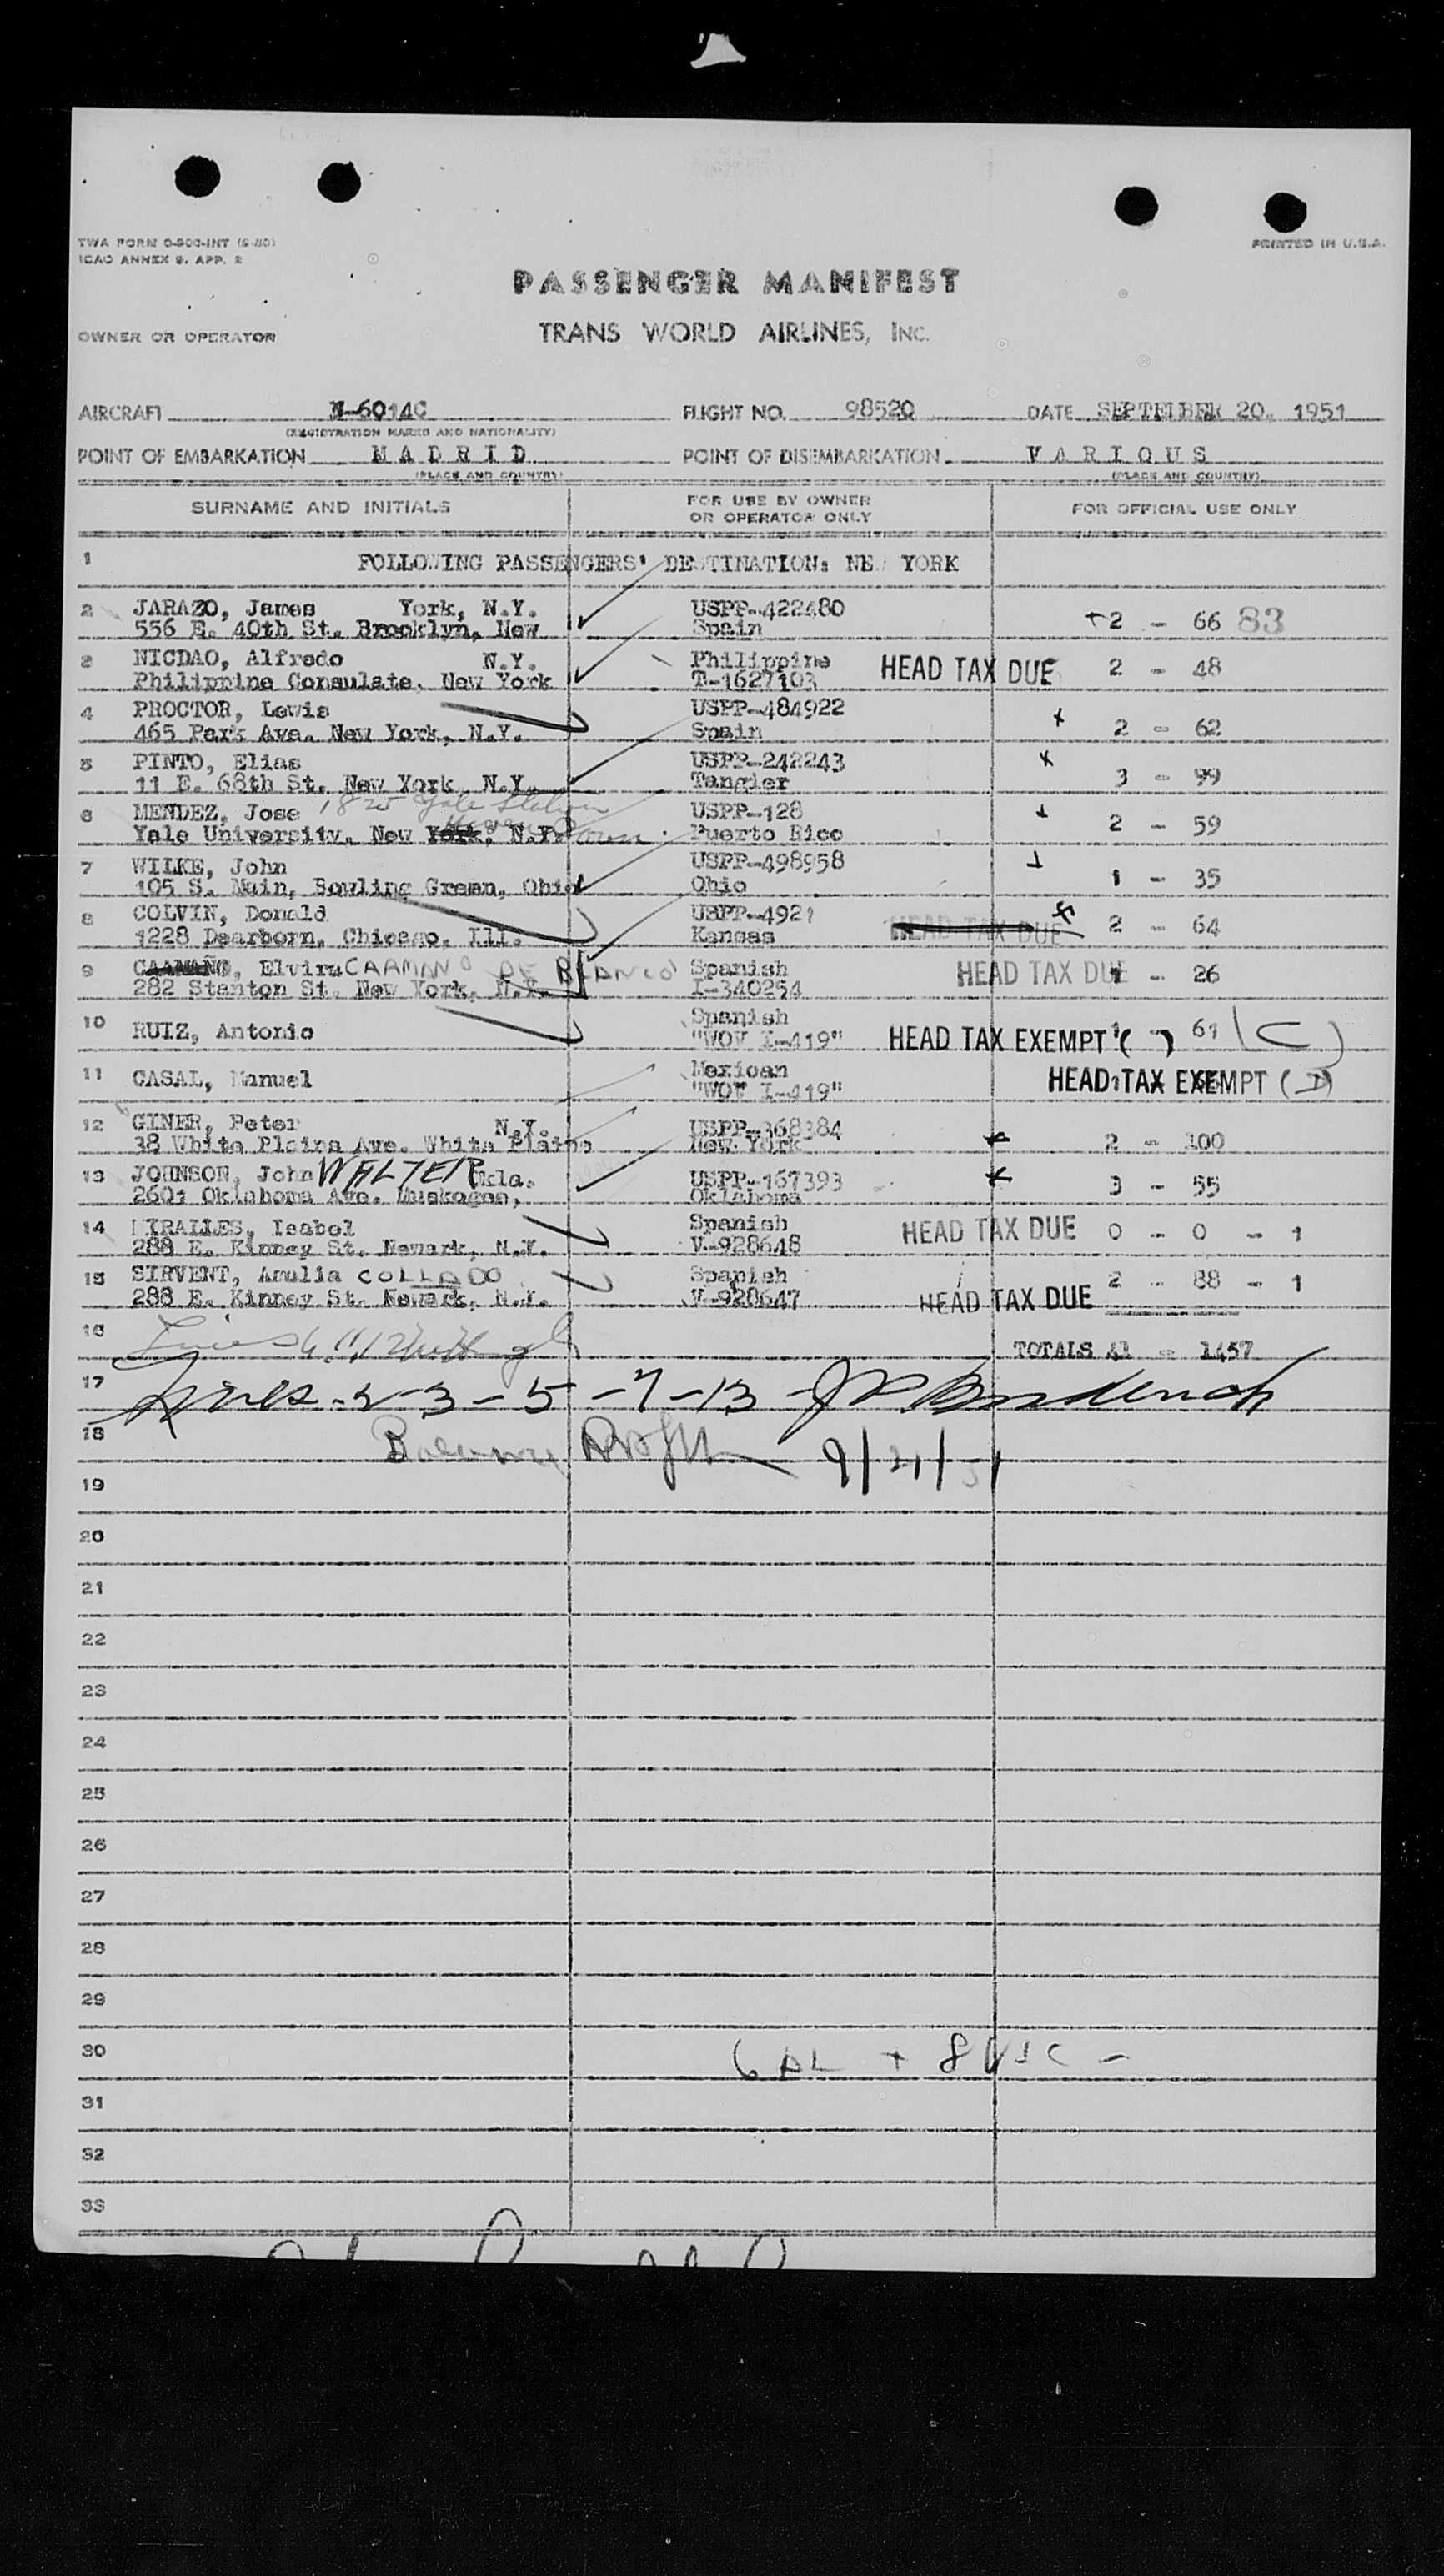 TWA FORM O-500-INT (5-50)
ICAO ANNEX 9. APP. 2
PRINTED IN U.S.A.
PASSENGER MANIFEST
OWNER OR OPERATOR
TRANS WORLD AIRLINES, INC.
AIRCRAFT N-6014C FLIGHT NO. 98520 DATE SEPTEMBER 20, 1951
(REGISTRATION MARKS AND NATIONALITY)
POINT OF EMBARKATION MADRID POINT OF DISEMBARKATION VARIOUS
(PLACE AND COUNTRY) (PLACE AND COUNTRY)
SURNAME AND INITIALS FOR USE BY OWNER OR OPERATOR ONLY FOR OFFICIAL USE ONLY
1 FOLLOWING PASSENGERS' DESTINATION: NEW YORK
2 JARAZO, James York, N.Y. USPP-422480 2 - 66 83
556 E. 40th St. Brooklyn, New Spain
3 NICDAO, Alfredo N.Y. Philippine HEAD TAX DUE 2 - 48
Philippine Consulate, New York T-1627103
4 PROCTOR, Lewis USPP-484922 x 2 - 62
465 Park Ave. New York, N.Y. Spain
5 PINTO, Elias USPP-242243 x 3 - 99
11 E. 68th St. New York, N.Y. Tangier
6 MENDEZ, Jose 1825 Yale Station USPP-128 2 - 59
Yale University, New York, N.Y. Haven Conn Puerto Rico
7 WILKE, John USPP-498958 1 - 35
105 S. Main, Bowling Green, Ohio Ohio
8 COLVIN, Donald USPP-4921 HEAD TAX DUE x 2 - 64
1228 Dearborn, Chicago, Ill. Kansas
9 CAAMAÑO, Elvira CAAMANO DE BLANCO Spanish HEAD TAX DUE 1 - 26
282 Stanton St. New York, N.Y. I-340254
10 RUIZ, Antonio Spanish HEAD TAX EXEMPT ( ) 61 (C)
"WOV I-419"
11 CASAL, Manuel Mexican HEAD TAX EXEMPT (I)
"WOV I-419"
12 GINER, Peter N.Y. USPP-368384 x 2 - 100
38 White Plains Ave. White Plains New York
13 JOHNSON, John WALTER Okla. USPP-167393 x 3 - 55
2601 Oklahoma Ave. Muskogee, Oklahoma
14 MIRALLES, Isabel Spanish HEAD TAX DUE 0 - 0 - 1
288 E. Kinney St. Newark, N.J. V-928648
15 SIRVENT, Amalia COLLADO Spanish 2 - 88 - 1
288 E. Kinney St. Newark, N.J. V-928647 HEAD TAX DUE
16 TOTALS 41 - 1457
17 Lines - 2-3-5-7-13
18 Balance 9/21/51
19
20
21
22
23
24
25
26
27
28
29
30 6 AL + 8 USC -
31
32
33